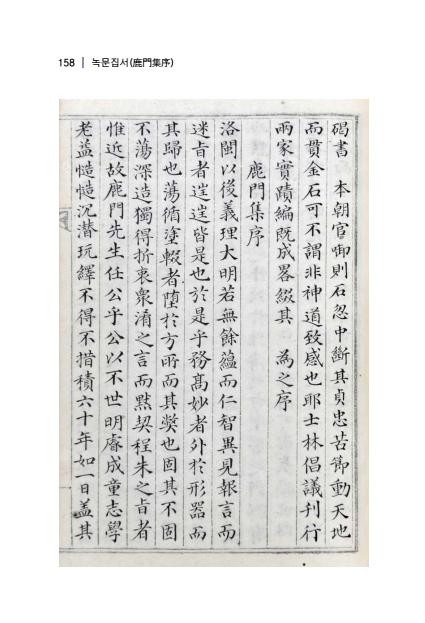 158 | 녹문집서(鹿門集序)
碣書 本朝官啣則石忽中斷其貞忠苦節動天地
而貫金石可不謂非神道致感也耶士林倡議刊行
兩家實蹟編旣成畧綴其 爲之序
鹿門集序
洛閩以後義理大明若無餘蘊而仁智異見報言而
迷旨者逞逞皆是也於是乎務髙妙者外於形器而
其歸也蕩循塗轍者墮於方所而其獘也固其不固
不蕩深造獨得折衷衆淆之言而黙契程朱之旨者
惟近故鹿門先生任公乎公以不世明睿成童志學
老益慥慥沉潛玩繹不得不措積六十年如一日盖其